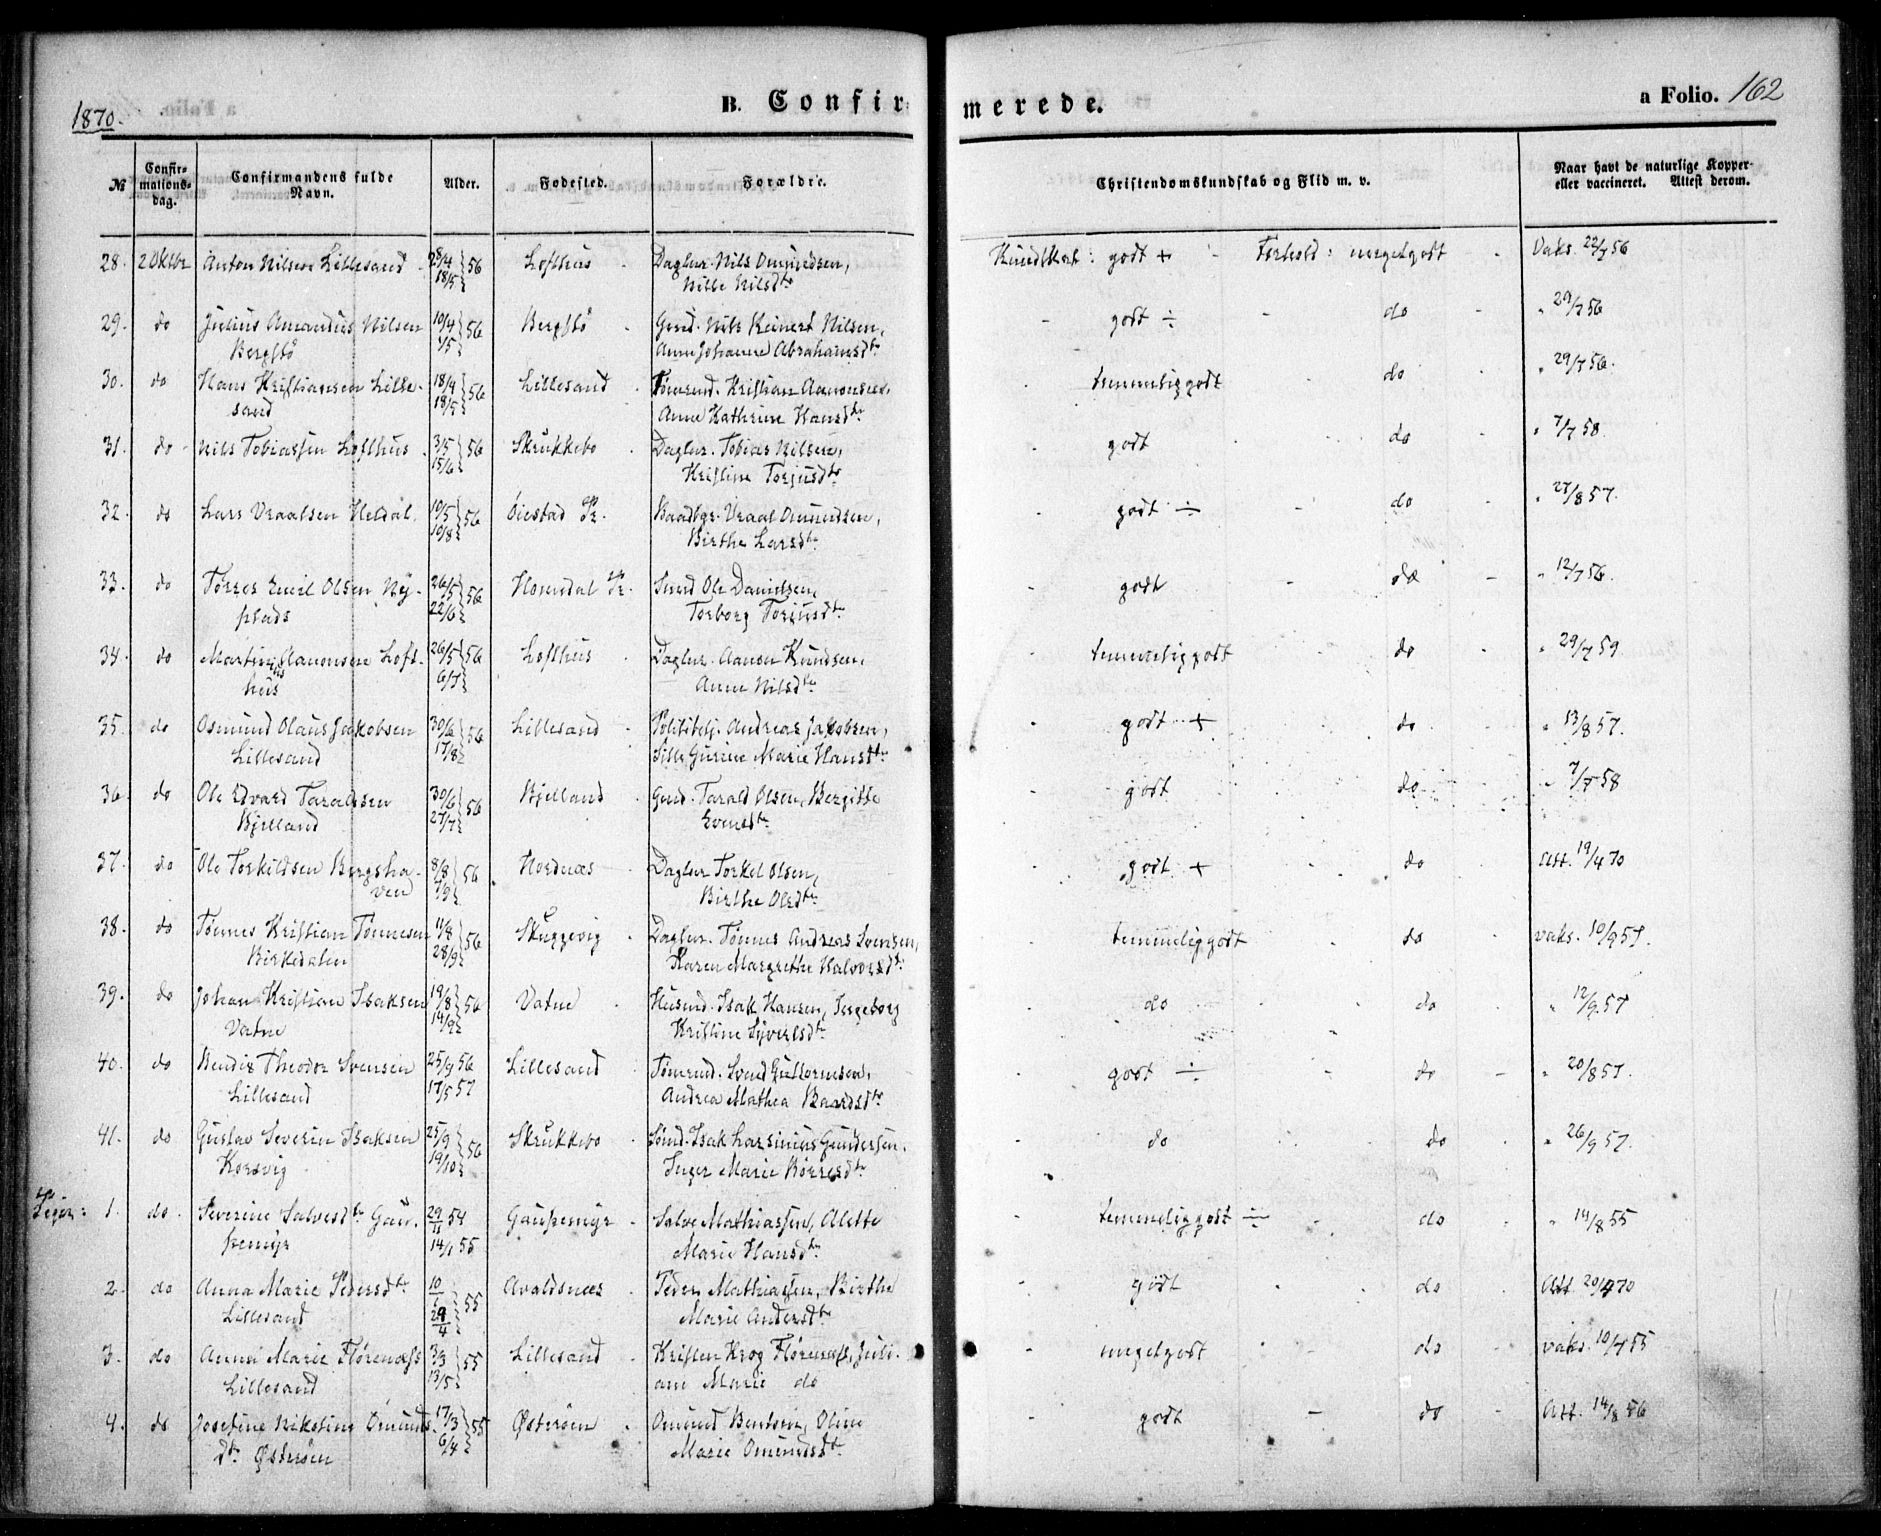 1870.
B. Confirmerede.
a Folio. 162
№
Confirmationsdag.
Confirmandens fulde Navn.
Alder.
Fødested.
Forældre.
Christendomskundskab og Flid m. v.
Naar havt de naturlige Kopper eller vaccineret. Attest derom.
28. 2 Oktbr Anton Nilsen Lillesand 56 Lofthus Daglnr. Nils Omundsen, Kundskab: godt + Forhold: megetgodt Vaks. 22/7 56
18/5 Nille Nilsdtr
29. do Julius Amandus Nilsen 10/4 56 Bergstø Grnd. Nils Reinert Nilsen, godt ÷ do " 29/7 56
Bergstø /5 Anne Johanne Abrahamsdtr
30. do Hans Kristiansen Lille- 18/4 56 Lillesand Tømmd. Kristian Aanonsen, temmeliggodt do " 29/7 56.
sand 18/5 Anne Kathrine Hansdtr
31. do Nils Tobiassen Lofthus 3/5 56 Skrukkebo Daglnr. Tobias Nilsen, godt do " 7/7 58
15/6 Kristine Torjusdtr
32. do Lars Vraalsen Heldal 10/5 56 Øiestad Pr. Vraal Omundsen, godt ÷ do " 27/8 57.
10/8 Birthe Larsdtr
33. do Tørres Emil Olsen Ny- 26/5 56 Homedal Pr. Smd Ole Danielsen, godt do " 12/7 56.
plads 22/6 Torborg Torjusdtr
34. do Martinius Aanonsen Loft- 26/5 56 Lofthus Daglnr. Aanon Knudsen, temmeliggodt do " 29/7 59
hus 6/7 Anne Nilsdtr
35. do Osmund Olaus Jakobsen 30/6 56 Lillesand Politibtj. Andreas Jakobsen, godt + do " 13/8 57.
Lillesand 17/8 Sille Gurine Marie Hansdtr
36. do Ole Edvard Taraldsen 30/6 56 Bjelland Grnd. Tarald Olsen, Bergitte godt do " 58
Bjelland 27/7 Evensdtr
37. do Ole Torkildsen Bergsha- 8/8 56 Nordnæs Daglnr Torkel Olsen, godt + do Att. 19/4 70
ven /9 Birthe Olsdtr
38. do Tønnes Kristian Tønnesen 11/8 56 Skuggevig Daglnr. Tønnes Andreas Svensen, temmeliggodt do vaks. 10/9 57.
Birkedalen 28/9 Karen Margrethe Halvorsdtr
39. do Johan Kristian Isaksen 19/8 56 Vatne Husmd. Isak Hansen, Ingeborg do do " 12/9 57
Vatne 14/9 Kristine Syvertsdtr
40. do Bendix Theodor Svensen 25/9 56 Lillesand Tømmd. Svend Guttormsen, godt ÷ do " 20/8 57.
Lillesand 17/5 57 Andrea Mathea Baardsdtr
41. do Gustav Severin Isaksen 25/9 56 Skrukkebo Sømd. Isak Larsinius Gundersen, do do " 26/9 57.
Korsvig 19/10 Inger Marie Børresdtr
Piger: 1. do Severine Salvesdtr Gau- 29/11 54 Gaupemyr Salve Mathiassen, Alette temmeliggodt ÷ do " 14/8 55
pemyr 14/1 55 Marie Hansdtr
2. do Anna Marie Pedersdtr 10/1 55 Avaldsnæs Peder Mathiassen, Birthe godt do Att 20/4 70
Lillesand 29/4 Marie Andersdtr
3. do Anna Marie Flørenæss 3/3 55 Lillesand Kristen Krog Flørenæss, Juli- megetgodt do vaks. 10/7 55
Lillesand 13/5 ane Marie do
4. do Josefine Nikoline Omunds- 17/3 55 Østerøen Omund Bentsen, Oline godt do Att. 14/8 56
dtr Østerøen 6/4 Marie Omundsdtr